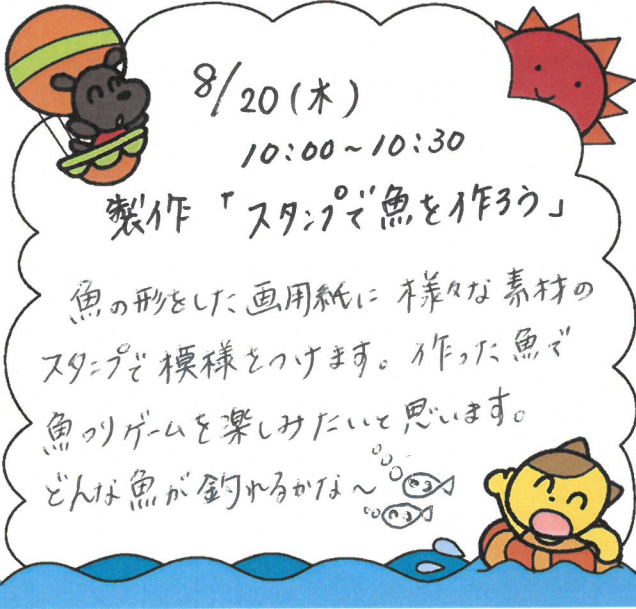 8/20(木)
10:00~10:30
製作「スタンプで魚を作ろう」
魚の形をした画用紙に様々な素材の
スタンプで模様をつけます。作った魚で
魚つりゲームを楽しみたいと思います。
どんな魚が釣れるかな~